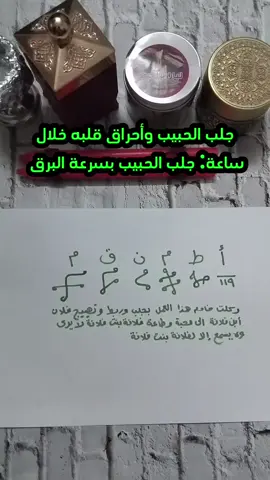 جلب الحبيب وأحراق قلبه خلال
ساعة: جلب الحبيب بسرعة البرق
أ ط م ن ق م
١١٩
وكلت خادم هذا العمل بجلب وربط وتهييج فلان
ابن فلانة الى محبة وطاعة فلانة بنت فلانة لا يرى
ولا يسمع إلا لفلانة بنت فلانة